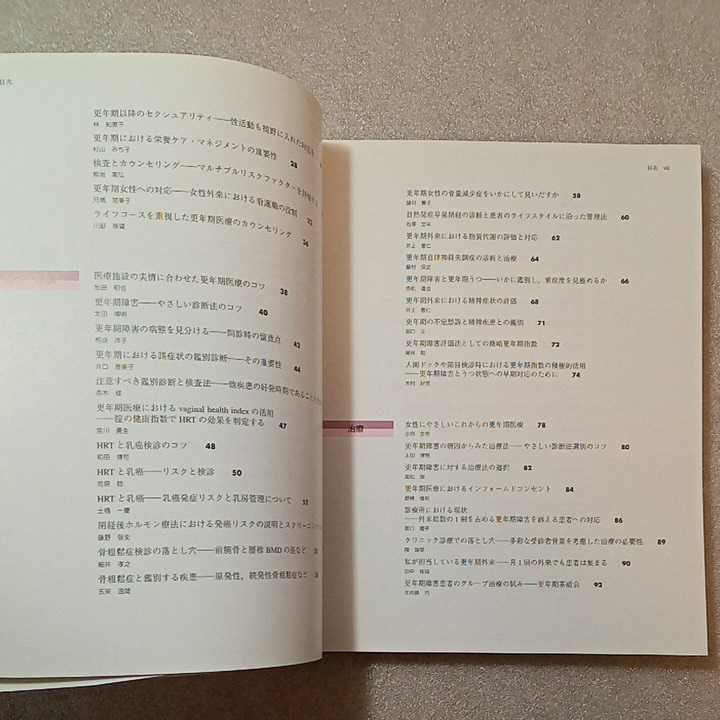 目次
更年期以降のセクシュアリティ——性活動も視野に入れた
林 知恵子
更年期における栄養ケア・マネジメントの重要性 28
村山 みち子
検査とカウンセリング——マルチプルリスクファクターを
更年期女性への対応——女性外来における看護職の役割 32
ライフコースを重視した更年期医療のカウンセリング 36
医療施設の実情に合わせた更年期医療のコツ 38
更年期障害——やさしい診断法のコツ 40
太田 博明
更年期障害の病態を見分ける——問診時の留意点 42
相良 洋子
更年期における誤症状の鑑別診断——その重要性 44
井口 登美子
注意すべき鑑別診断と検査法——他疾患の好発時期であること
更年期医療における vaginal health index の活用
——腟の健康指数で HRT の効果を判定する 47
HRT と乳癌検診のコツ 48
HRT と乳癌——リスクと検診 50
HRT と乳癌——乳癌発症リスクと乳房管理について 52
土橋 一慶
閉経後ホルモン療法における発癌リスクの説明とスクリーニング
藤野 敬史
骨粗鬆症検診の落とし穴——前腕骨と腰椎 BMD の差など
細井 孝之
骨粗鬆症と鑑別する疾患——原発性，続発性骨粗鬆症など
五來 逸雄
目次 vii
更年期女性の骨量減少症をいかにして見いだすか 58
自然発症早発閉経の診断と患者のライフスタイルに沿った管理法 60
更年期外来における脂質代謝の評価と対応 62
更年期自律神経失調症の診断と治療 64
更年期障害と更年期うつ——いかに鑑別し，重症度を見極めるか 66
更年期外来における精神症状の評価 68
更年期の不定愁訴と精神疾患との鑑別 71
更年期障害評価法としての簡略更年期指数 72
人間ドックや節目検診時における更年期指数の積極的活用
——更年期障害とうつ状態への早期対応のために 74
治療
女性にやさしいこれからの更年期医療 78
更年期障害の病因からみた治療法——やさしい診断逆選別のコツ 80
太田 博明
更年期障害に対する治療法の選択 82
更年期医療におけるインフォームドコンセント 84
診療所における現状
——外来総数の1割を占める更年期障害を訴える患者への対応 86
クリニック診療での落とし穴——多彩な受診者背景を考慮した治療の必要性 89
私が担当している更年期外来——月1回の外来でも患者は集まる 90
更年期障害患者のグループ治療の試み——更年期茶話会 92